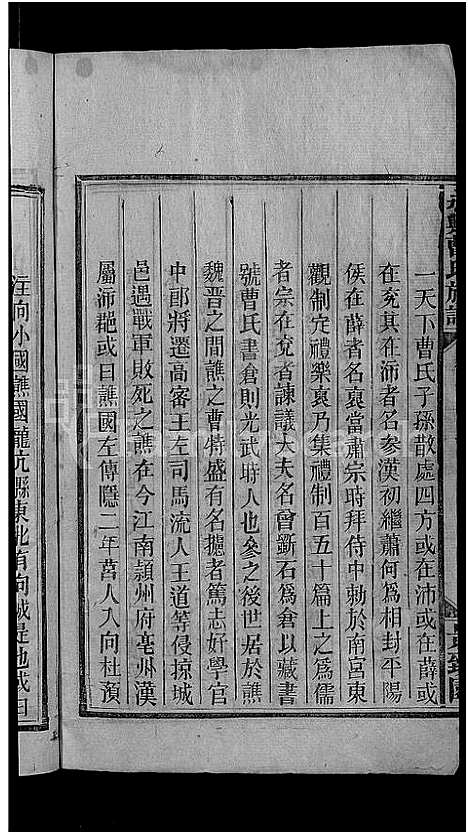 一天下曹氏子孫散處四方或在沛或在薛或
在兖其在沛者名參漢初繼蕭何爲相封平陽
侯在薛者名裒當肅宗時拜侍中勅於南宮東
觀制定禮樂裒乃集禮制百五十篇上之爲儒
者宗在兖者諫議大夫名曾斲石爲倉以藏書
號曹氏書倉則光武時人也參之後世居於譙
魏晉之間譙之曹特盛有名攄者篤志好學官
中郎將遷高客王左司馬流人王道等侵掠城
邑遇戰軍敗死之譙在今江南頴州府亳州漢
屬沛郡或曰譙國左傳隱二年莒人入向杜預
注向小國譙國龍亢縣東北有向城是也或曰